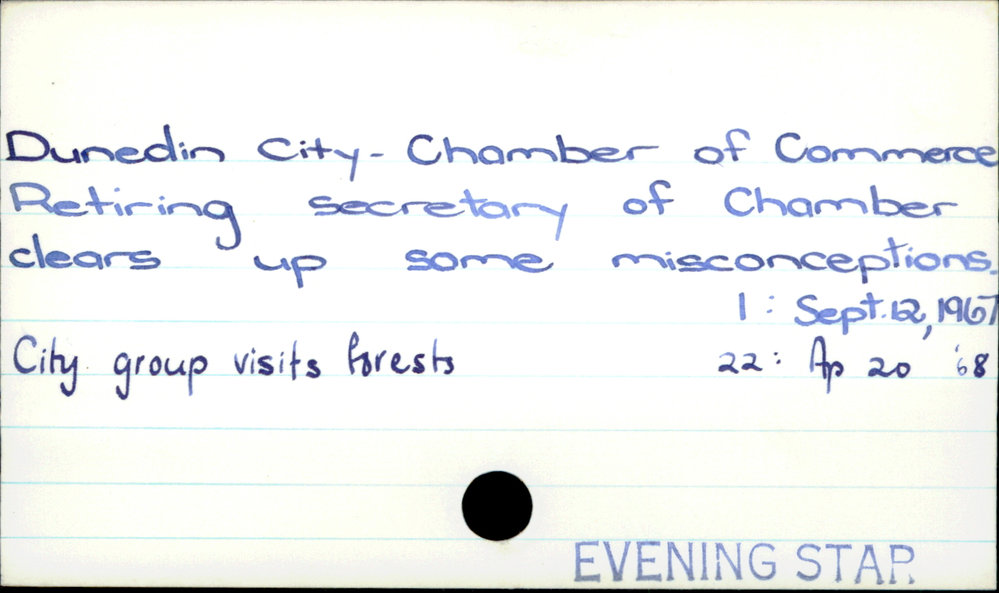 Dunedin City - Chamber of Commerce
Retiring secretary of Chamber
clears up some misconceptions.
1 : Sept. 12, 1967
City group visits forests 22 : Ap 20 '68
EVENING STAR